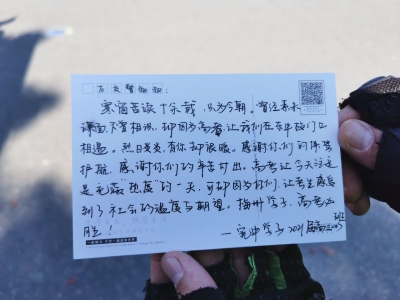 寒窗苦读十余载，只为今朝。曾经素未
谋面，不曾相识，却因为高考让我们在东中校门口
相遇。烈日炎炎，有你却很暖。感谢你们的保驾
护航，感谢你们的辛苦付出。高考让今天注定
是充满热度的一天，可却因为你们，让考生感受
到了社会的温度与期望。梅州学子，高考必
胜！
2021届高三